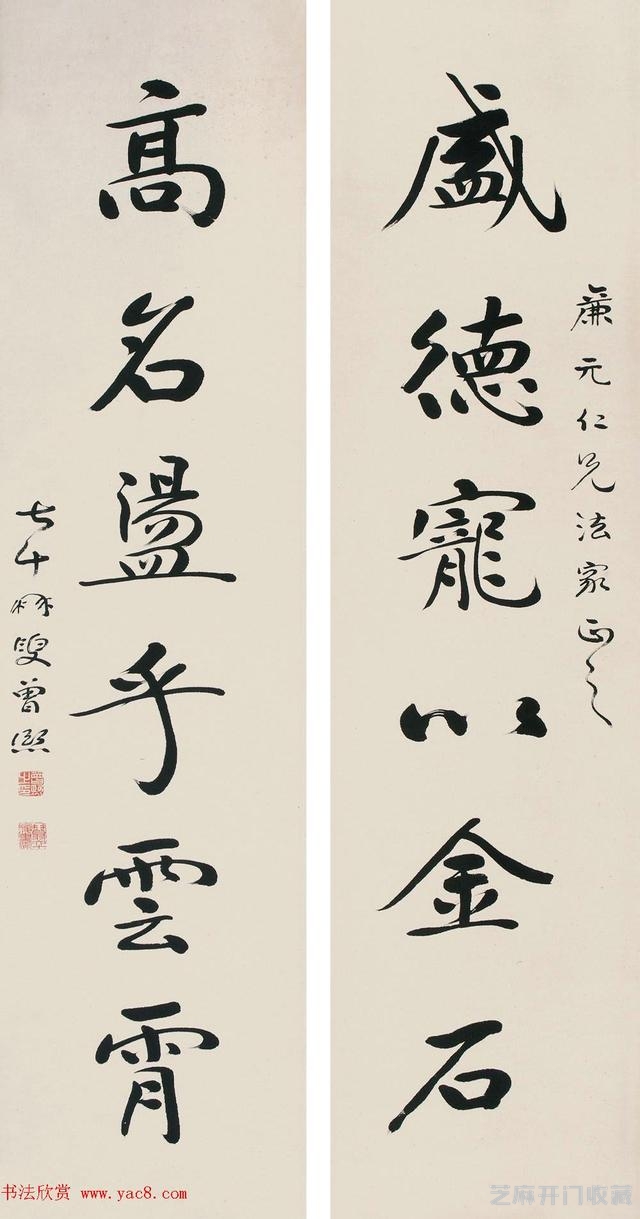 盛德寵以金石
廉元仁兄法家正之
高名盪乎雲霄
曾熙
书法欣赏 www.yac8.com
芝麻开门收藏